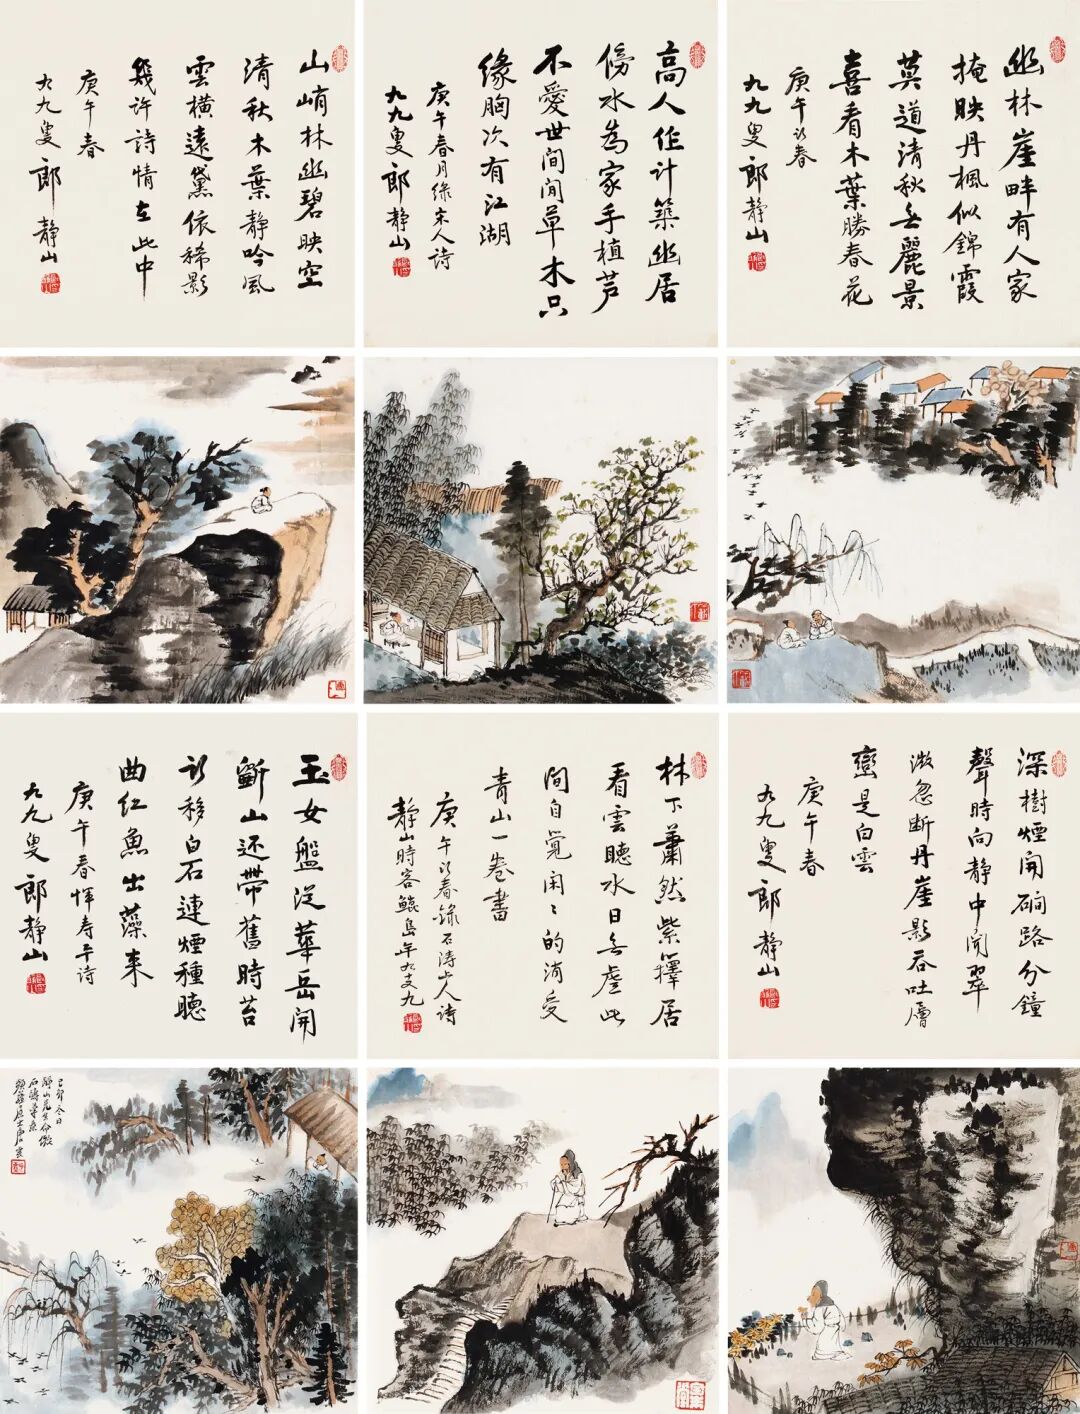 幽林崖畔有人家
掩映丹楓似錦霞
莫道清秋无麗景
喜看木葉勝春花
庚午初春
九九叟郎靜山
高人作計築幽居
傍水為家手植芦
不愛世間閒草木只
緣胸次有江湖
庚午春月錄宋人詩
九九叟郎靜山
山峭林幽碧映空
清秋木葉靜吟風
雲橫遠黛依稀影
幾許詩情在此中
庚午春
九九叟郎靜山
深樹煙開硐路分鐘
聲時向靜中聞翠
微忽斷丹崖影吞吐層
巒是白雲
庚午春
九九叟郎靜山
林下蕭然紫籜居
看雲聽水日无虛此
間自覺閑〻的消受
青山一卷書
庚午初春錄石濤上人詩
靜山時客鯤島年九又九
玉女盤從華岳開
斸山還帶舊時苔
初移白石連煙種聽
曲紅魚出藻來
庚午春惲壽平詩
九九叟郎靜山
己卯冬日